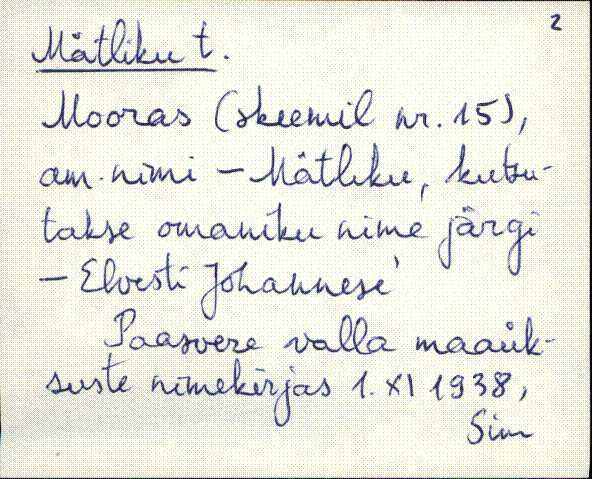 2
Mätliku t.
Mooras (skeemil nr. 15),
am. nimi – Mätliku, kutsu-
takse omaniku nime järgi
– Elvesti Johannese'
Paasvere valla maaük-
suste nimekirjas 1. XI 1938,
Sim